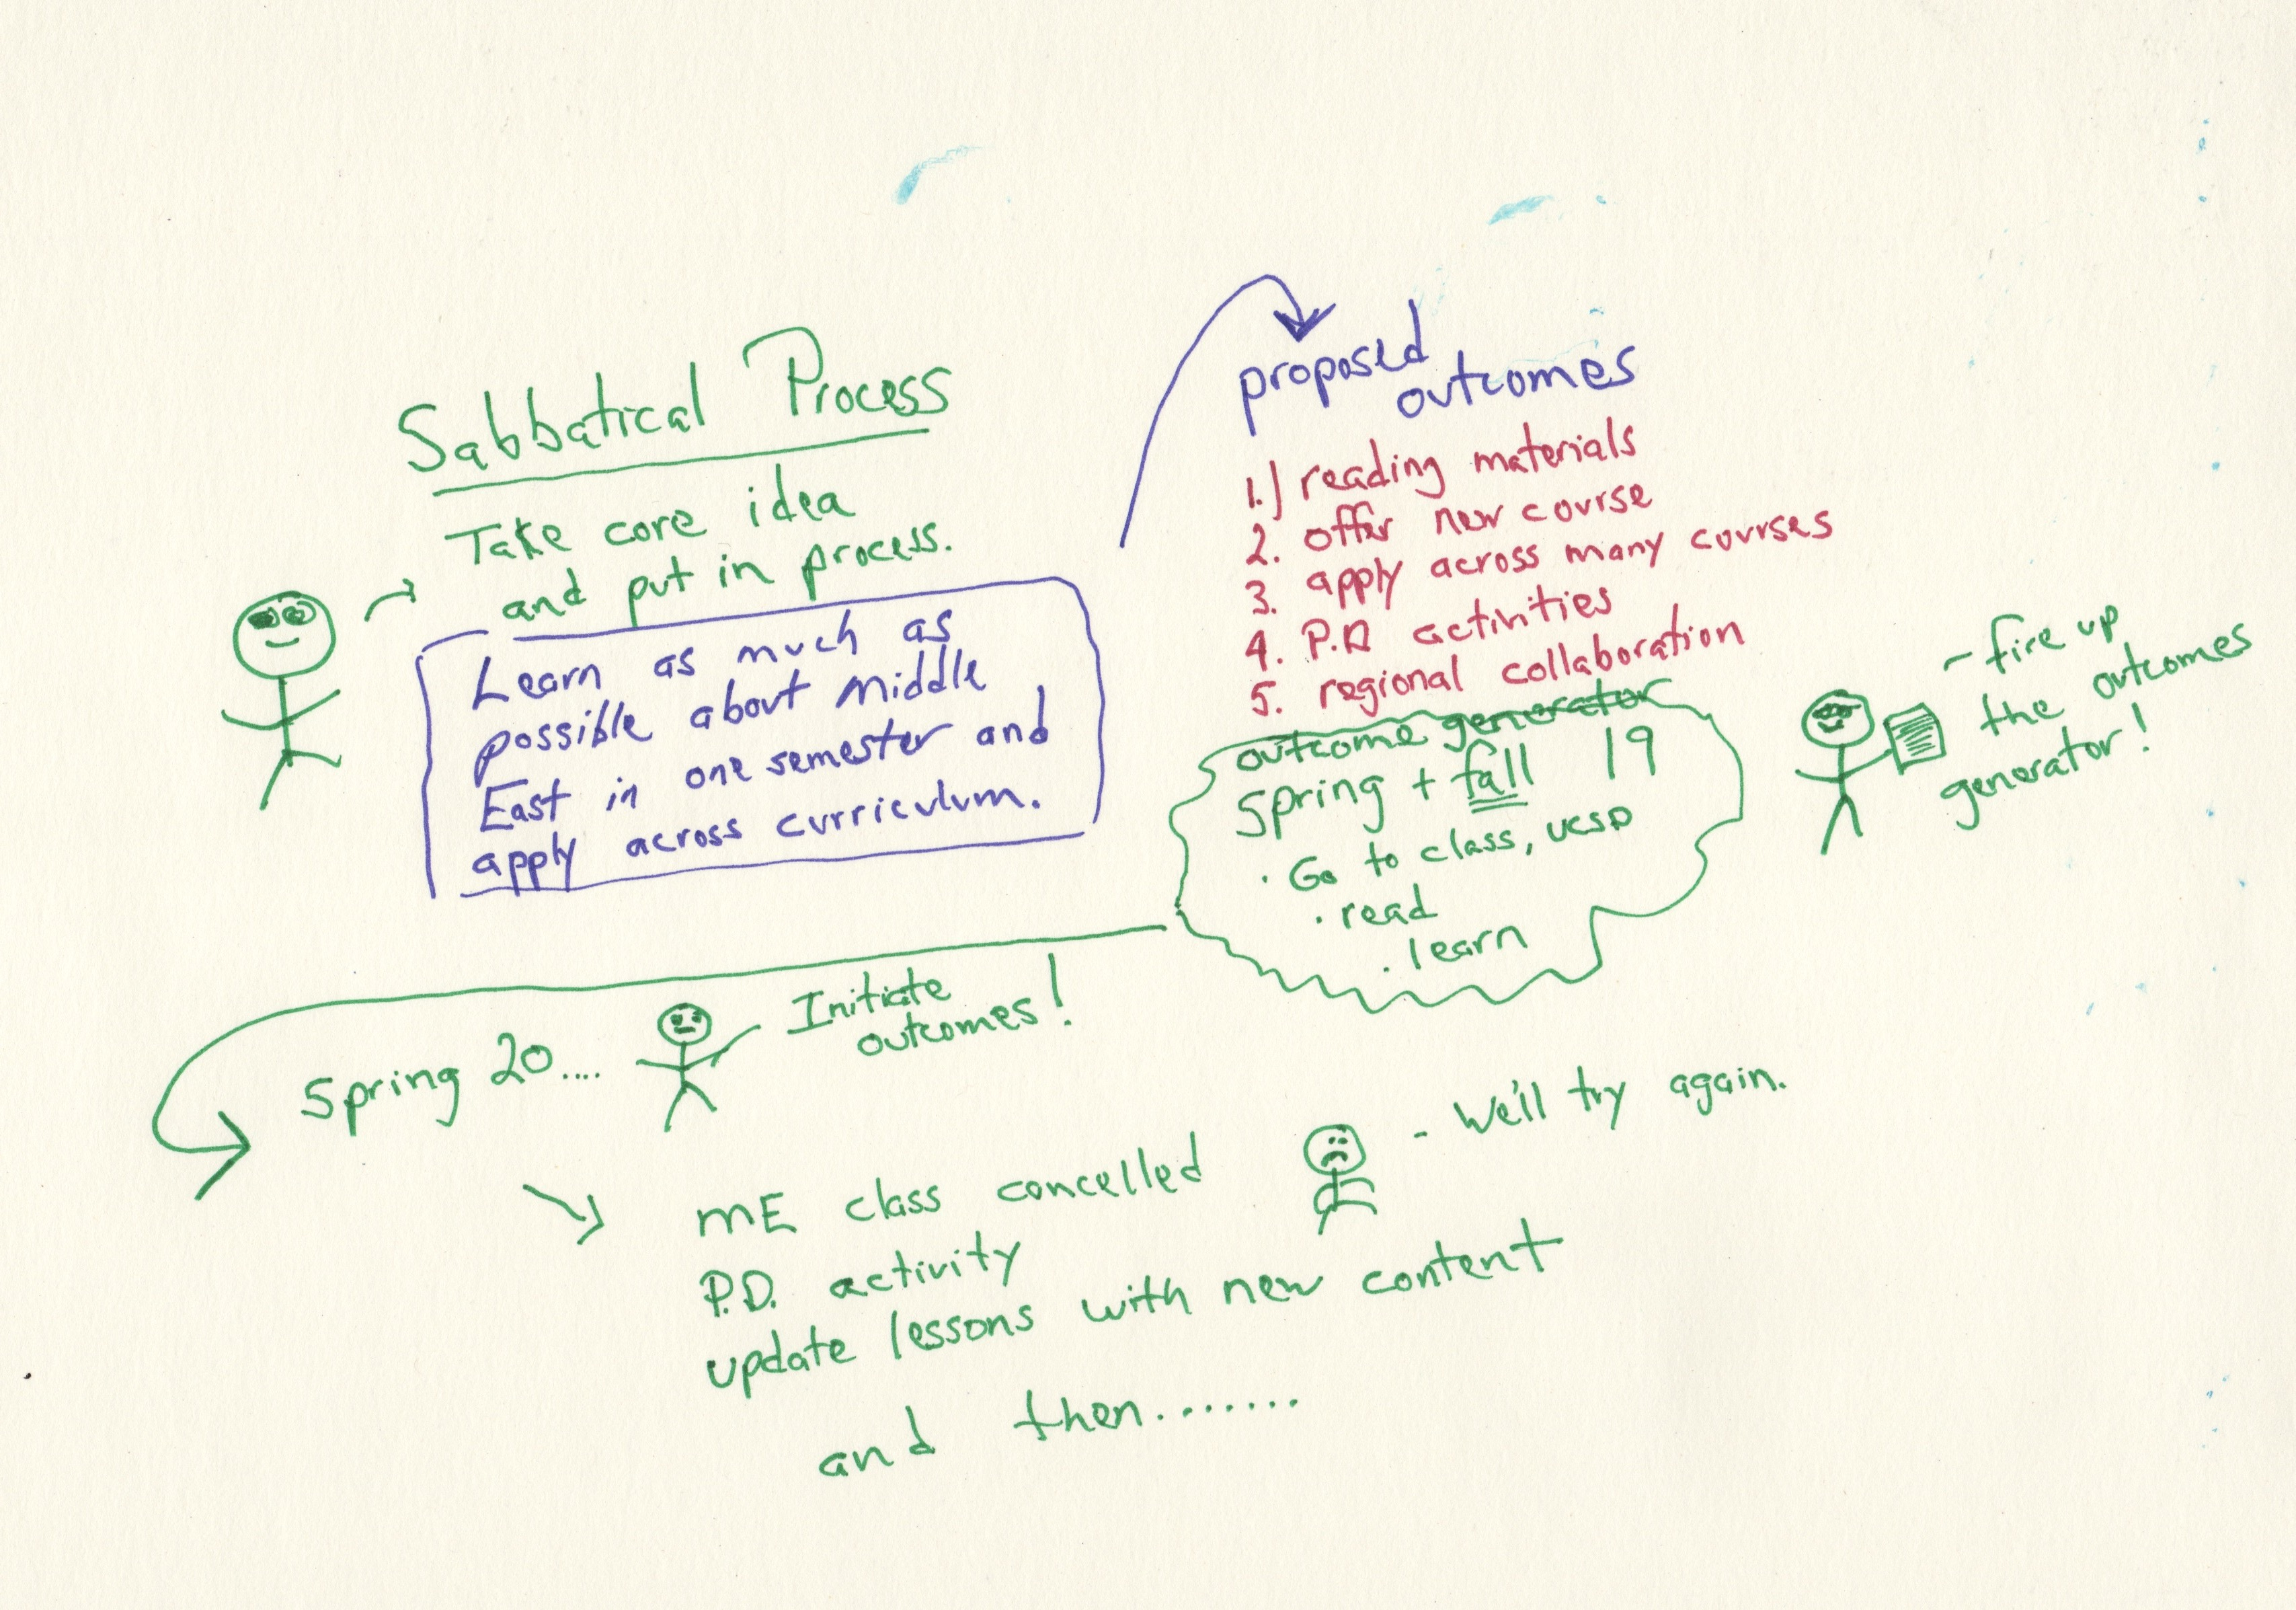 Sabbatical Process
Take core idea
and put in process.
Learn as much as
possible about Middle
East in one semester and
apply across curriculum.
proposed
outcomes
1.) reading materials
2. offer new course
3. apply across many courses
4. P.D. activities
5. regional collaboration
outcome generator
Spring + fall 19
· Go to class, UCSD
· read
· learn
- fire up
the outcomes
generator!
Spring 20....
Initiate
outcomes!
ME class concelled
- We'll try again.
P.D. activity
update lessons with new content
and then.......